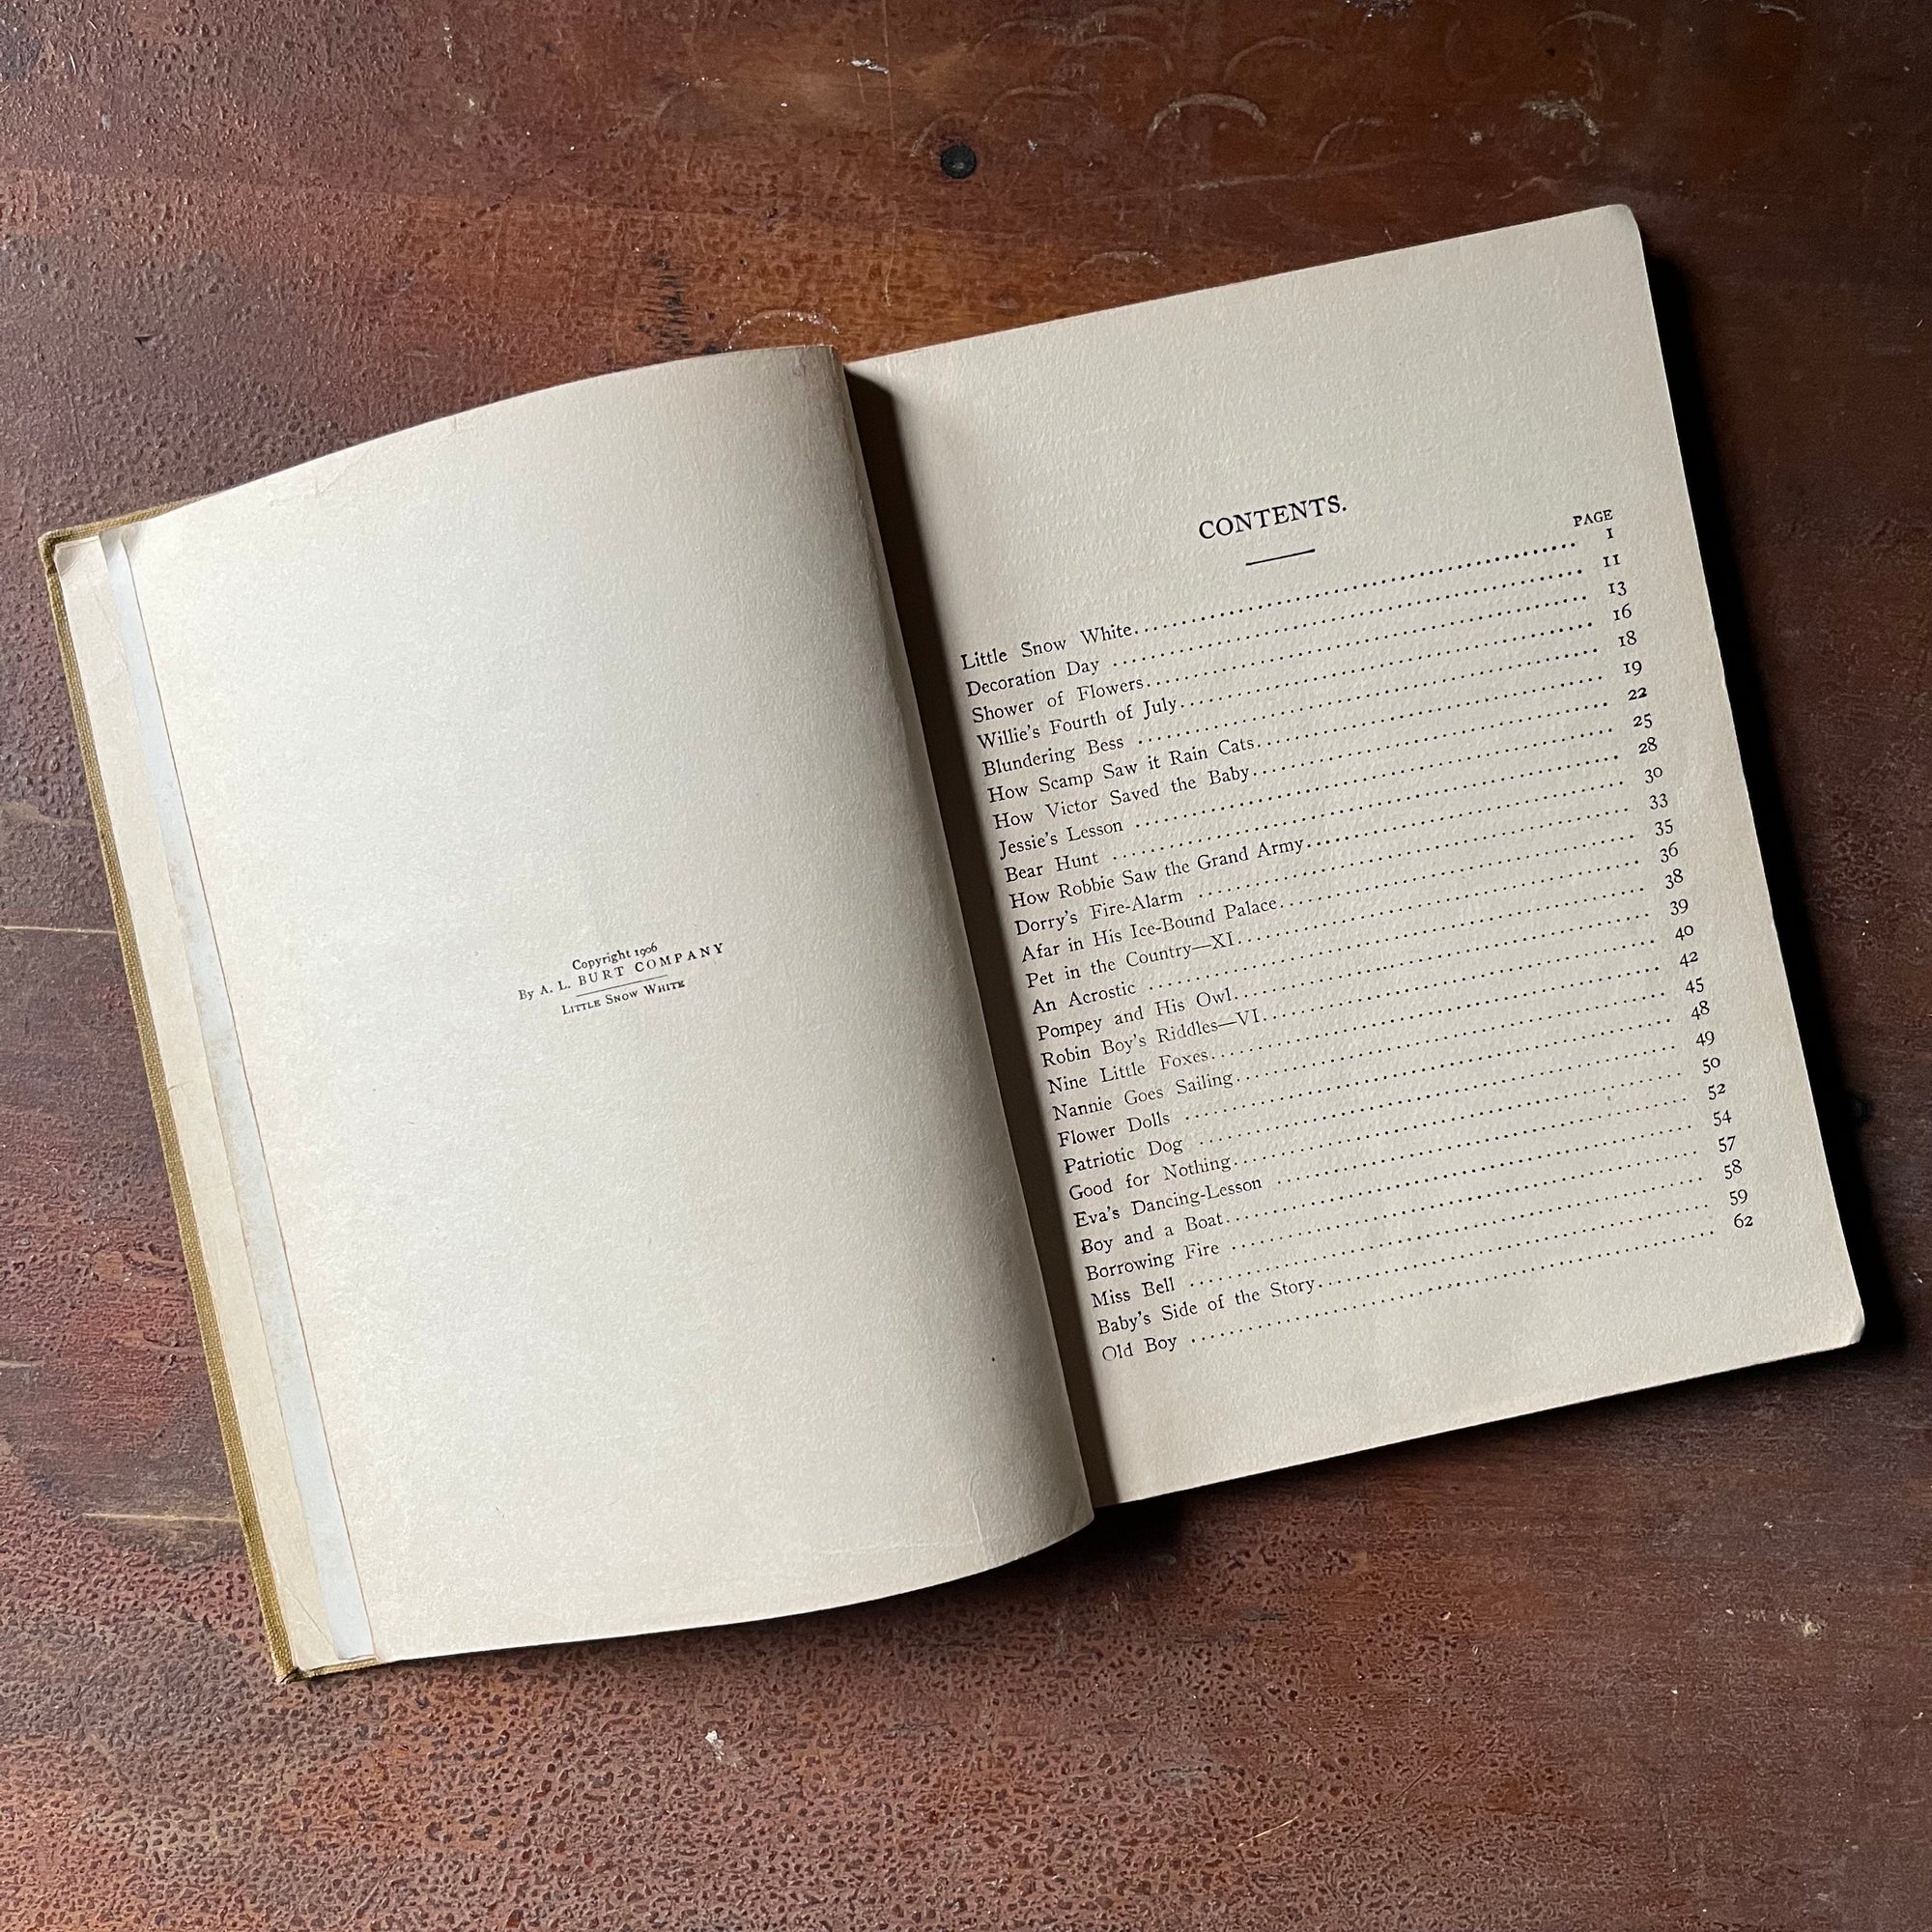 Copyright 1906
By A. L. BURT COMPANY
LITTLE SNOW WHITE
CONTENTS.
PAGE
Little Snow White 1
Decoration Day 11
Shower of Flowers 13
Willie's Fourth of July 16
Blundering Bess 18
How Scamp Saw it Rain Cats 19
How Victor Saved the Baby 22
Jessie's Lesson 25
Bear Hunt 28
How Robbie Saw the Grand Army 30
Dorry's Fire-Alarm 33
Afar in His Ice-Bound Palace 35
Pet in the Country—XI 36
An Acrostic 38
Pompey and His Owl 39
Robin Boy's Riddles—VI 40
Nine Little Foxes 42
Nannie Goes Sailing 45
Flower Dolls 48
Patriotic Dog 49
Good for Nothing 50
Eva's Dancing-Lesson 52
Boy and a Boat 54
Borrowing Fire 57
Miss Bell 58
Baby's Side of the Story 59
Old Boy 62